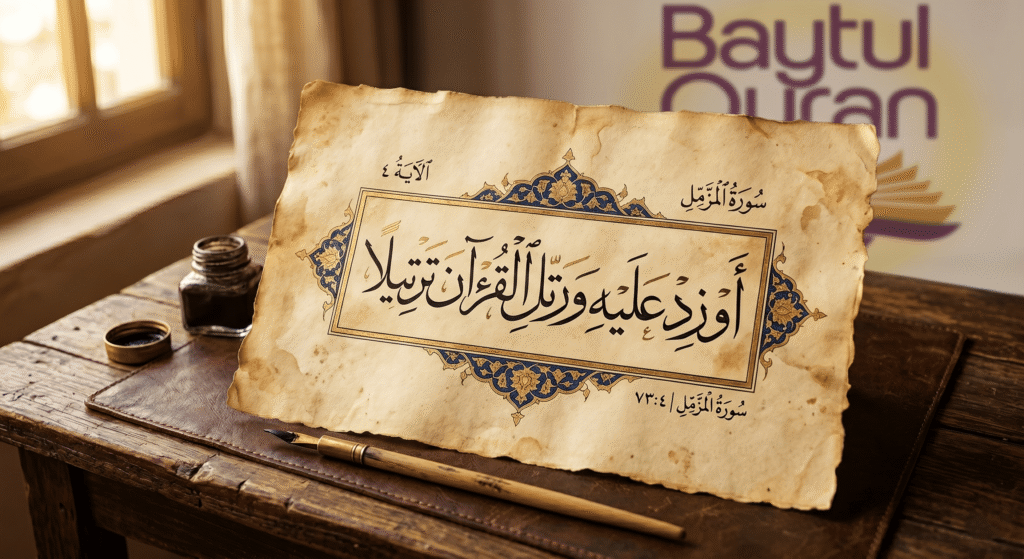 Baytul
Quran
سُورَةُ ٱلْمُزَّمِّلِ
ٱلْآيَةُ ٤
أَوْ زِدْ عَلَيْهِ وَرَتِّلِ ٱلْقُرْءآنَ تَرْتِيلًا
سُورَةُ ٱلْمُزَّمِّلِ | ٧٣:٤